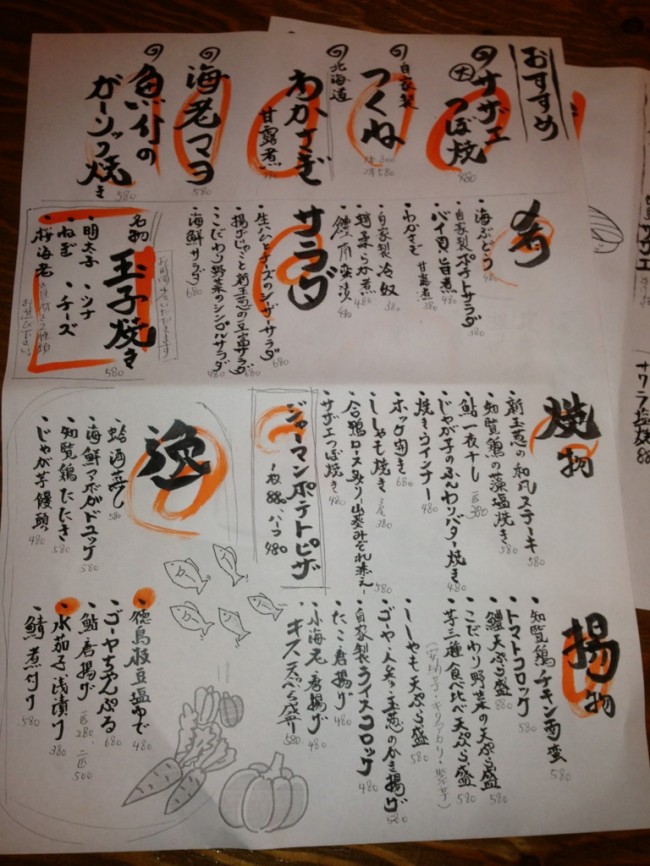 おすすめ
サザエ
つぼ焼
480
自家製
つくね
北海道
わかさぎ
甘露煮
海老マヨ
580
魚介の
ガーリック焼き
580
肴
・海ぶどう 480
・自家製ポテトサラダ 380
・バイ貝旨煮 480
・わかさぎ 甘露煮 380
・自家製 冷奴 380
サラダ
・生ハムとチーズのシーザーサラダ 680
・揚げじゃこと新玉葱の豆富サラダ 680
・こだわり野菜のシンプルサラダ 480
・海鮮サラダ 680
名物
玉子焼き
580
・明太子 ・ツナ
・ねぎ ・チーズ
・桜海老
焼物
・新玉葱の和風ステーキ 580
・知覧鶏の藻塩焼き 580
・鮎一夜干し 一匹 380
・じゃが子のふんわりバター焼き 480
・焼きウインナー 480
・ホッケ開き 680
・ししゃも焼き 380
・合鴨ロース炙り 山葵みぞれ添え 580
・サザエつぼ焼き 480
ジャーマンポテトピザ
一枚 880、ハーフ 480
逸
・蛤酒蒸し 580
・海鮮アボガドユッケ 580
・知覧鶏たたき 580
・じゃが芋饅頭 480
揚物
・知覧鶏チキン南蛮 580
・トマトコロッケ 580
・鱧天ぷら盛 880
・こだわり野菜の天ぷら盛 580
・芋三種食べ比べ天ぷら盛 580
・ししゃも天ぷら盛 580
・ゴーヤ・人参・玉葱のかき揚げ 580
・自家製ライスコロッケ 480
・たこ唐揚げ 480
・小海老唐揚げ 480
・キス天ぷら盛 580
・徳島枝豆塩ゆで 480
・ゴーヤちゃんぷる 680
・鮎唐揚げ 一匹 280、二匹 500
・水茄子浅漬け 380
・鯖煮付け 580